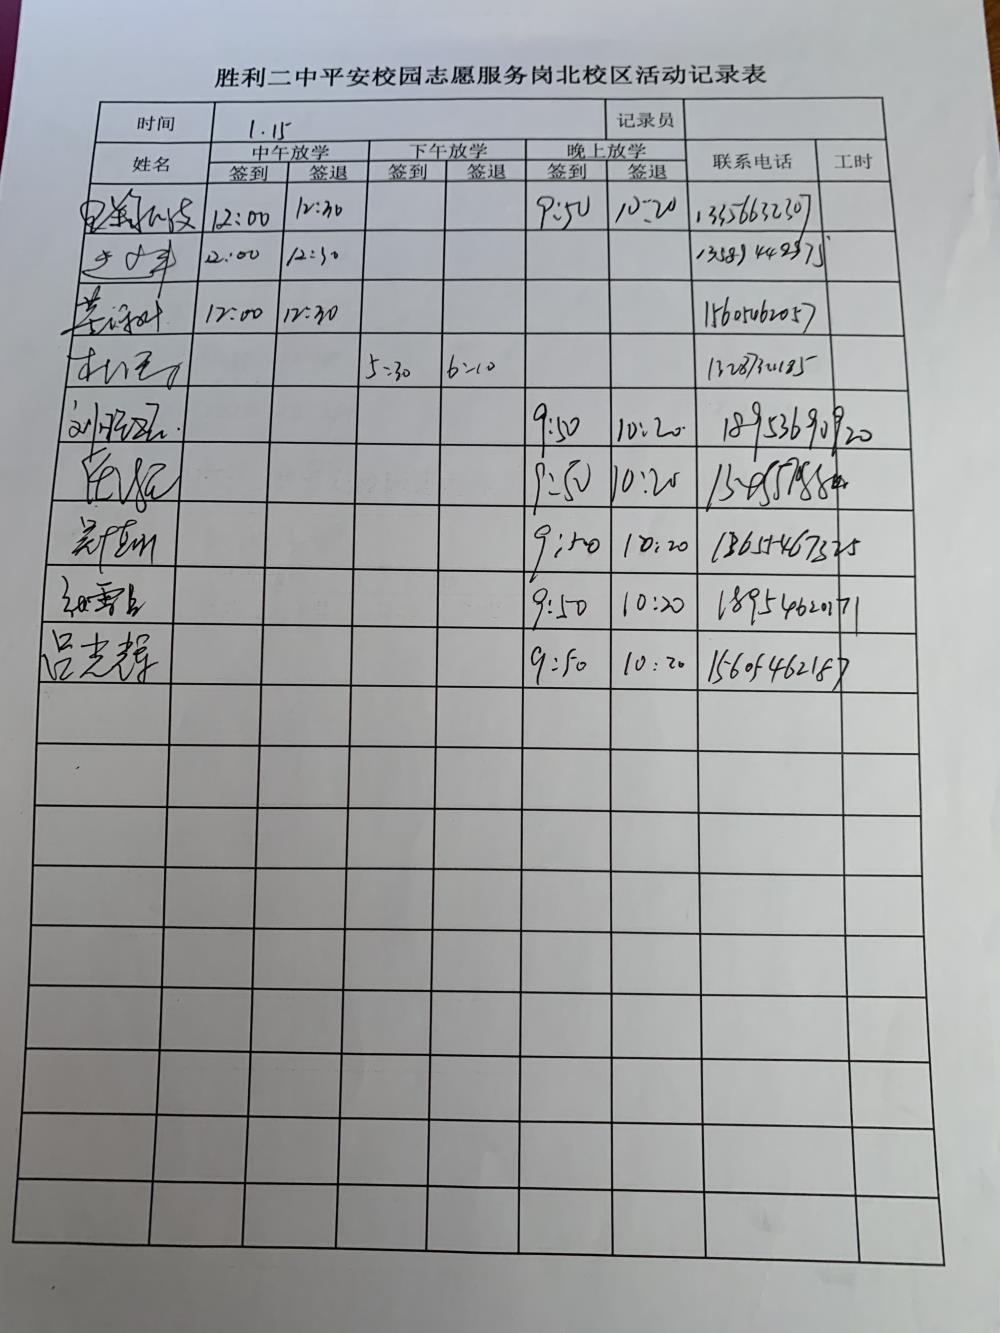 胜利二中平安校园志愿服务岗北校区活动记录表
时间 1.15 记录员
姓名 中午放学 下午放学 晚上放学 联系电话 工时
签到 签退 签到 签退 签到 签退
12:00 12:30 9:50 10:20 13356632307
12:00 12:30
12:00 12:30 15605462057
5:30 6:10
9:50 10:20 18953690920
9:50 10:20
9:50 10:20 13655467325
9:50 10:20 18954620171
吕光辉 9:50 10:20 15605462187